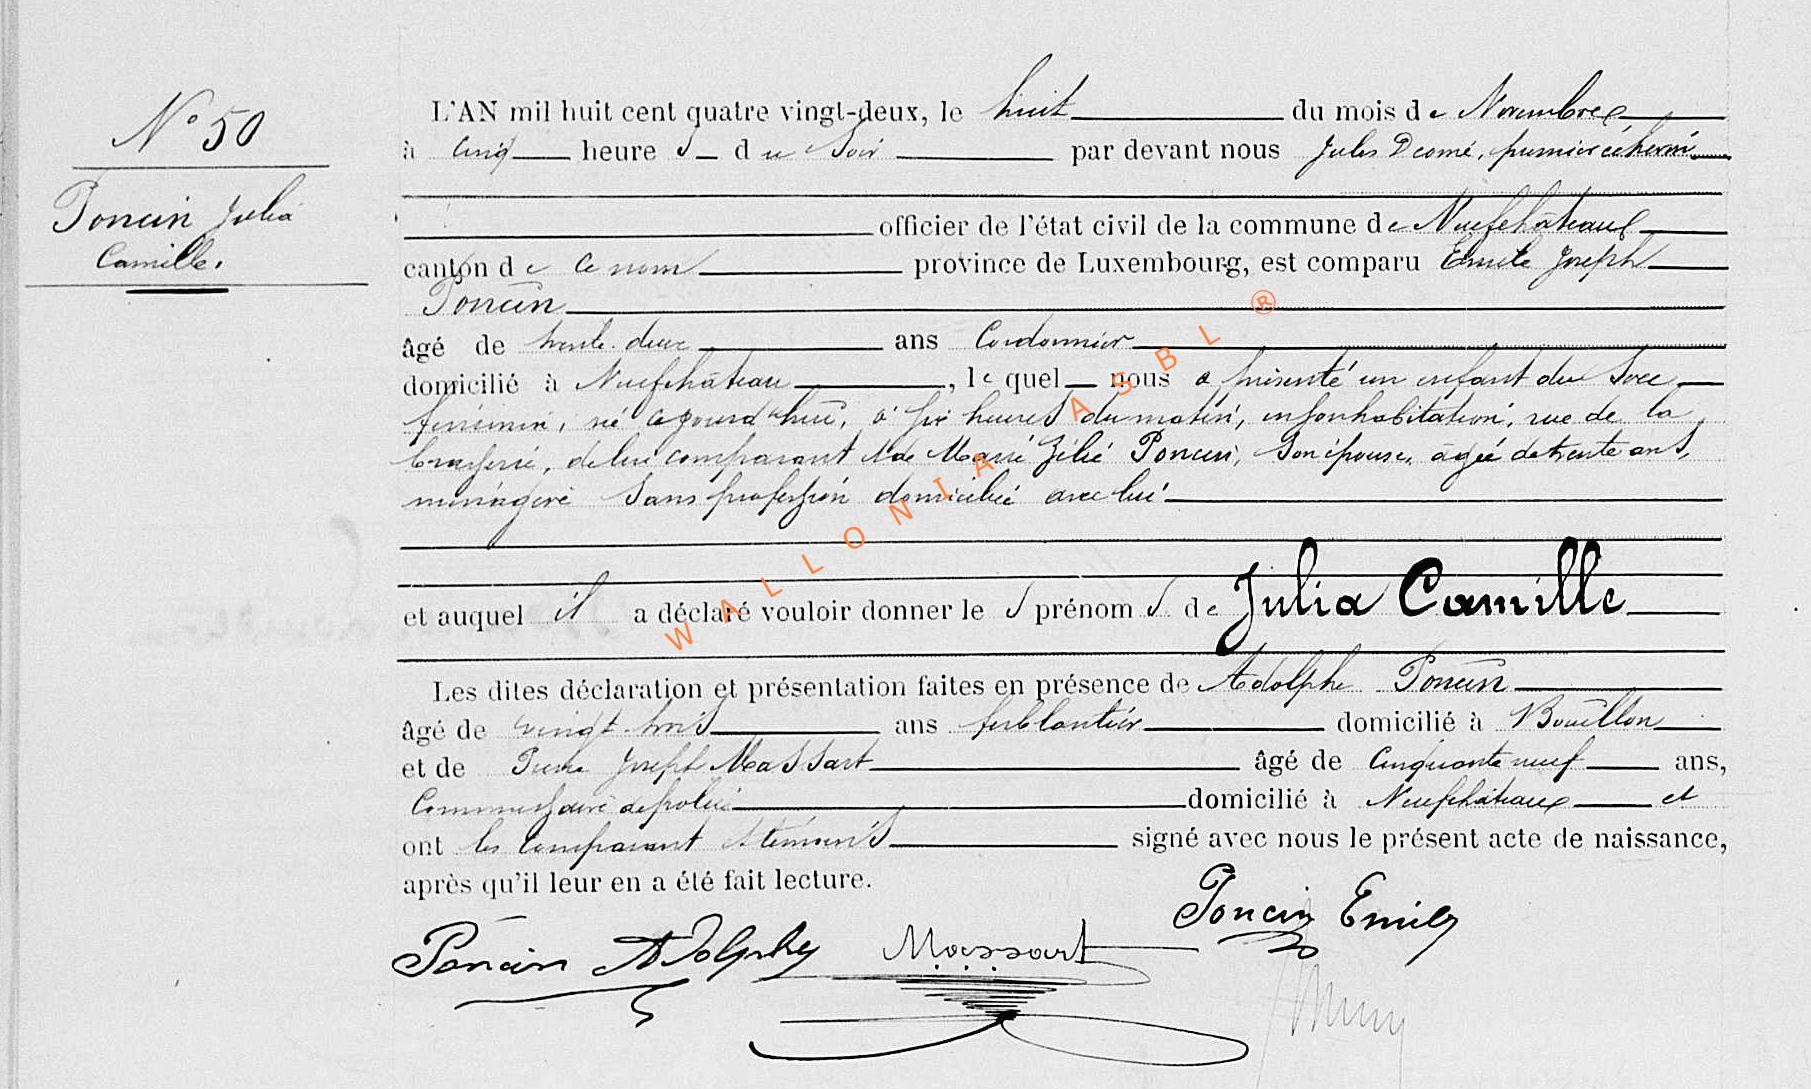 N° 50
Poncin Julia
Camille.
L'AN mil huit cent quatre vingt-deux, le huit du mois de Novembre
à cinq heures du soir par devant nous Jules Dcomé, premier échevin
officier de l'état civil de la commune de Neufchâteau
canton de ce nom province de Luxembourg, est comparu Emile Joseph
Poncin
âgé de trente deux ans Cordonnier
domicilié à Neufchâteau, lequel nous a présenté un enfant du sexe
féminin, né ce jourd'hui, à six heures du matin, en son habitation, rue de la
brasserie, de lui comparant & de Marie Zélie Poncin, son épouse, âgée de trente ans,
ménagère sans profession domiciliée avec lui
et auquel il a déclaré vouloir donner les prénoms de Julia Camille
Les dites déclaration et présentation faites en présence de Adolphe Poncin
âgé de vingt-trois ans ferblantier domicilié à Bouillon
et de Pierre Joseph Massart âgé de cinquante neuf ans,
Commissaire de police domicilié à Neufchâteau et
ont les comparant & témoins signé avec nous le présent acte de naissance,
après qu'il leur en a été fait lecture.
Poncin Emile
Poncin Adolphe Massart
WALLONIA ASBL ®